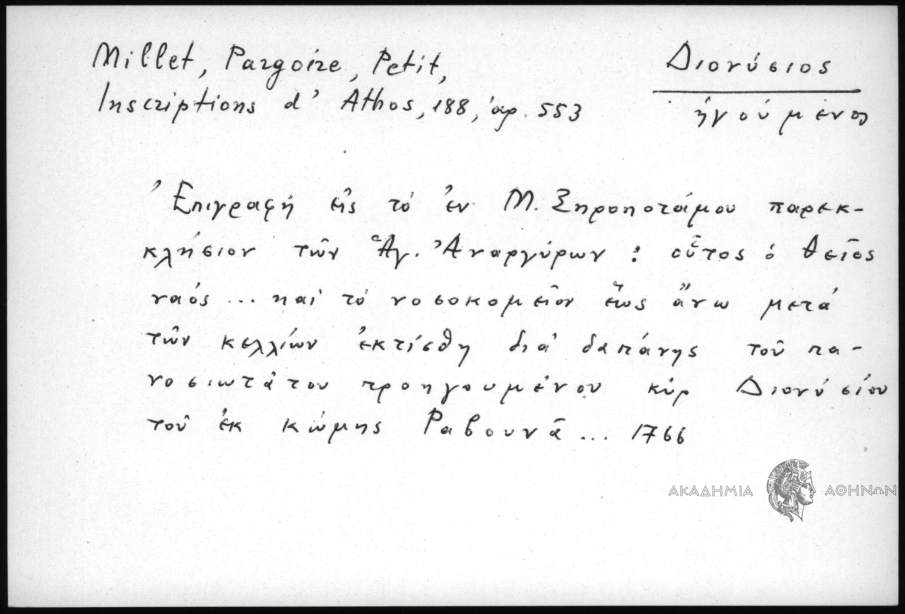 Millet, Pargoire, Petit,
Inscriptions d' Athos, 188, ἀρ. 553
Διονύσιος
ἡγούμενος
Ἐπιγραφή εἰς τὸ ἐν Μ. Ξηροποτάμου παρεκ-
κλήσιον τῶν Ἁγ. Ἀναργύρων : οὗτος ὁ θεῖος
ναός ... καί τὸ νοσοκομεῖον ἕως ἄνω μετά
τῶν κελλίων ἐκτίσθη διά δαπάνης τοῦ πα-
νοσιωτάτου προηγουμένου κύρ Διονυσίου
τοῦ ἐκ κώμης Ραβουνᾶ ... 1766
ΑΚΑΔΗΜΙΑ ΑΘΗΝΩΝ